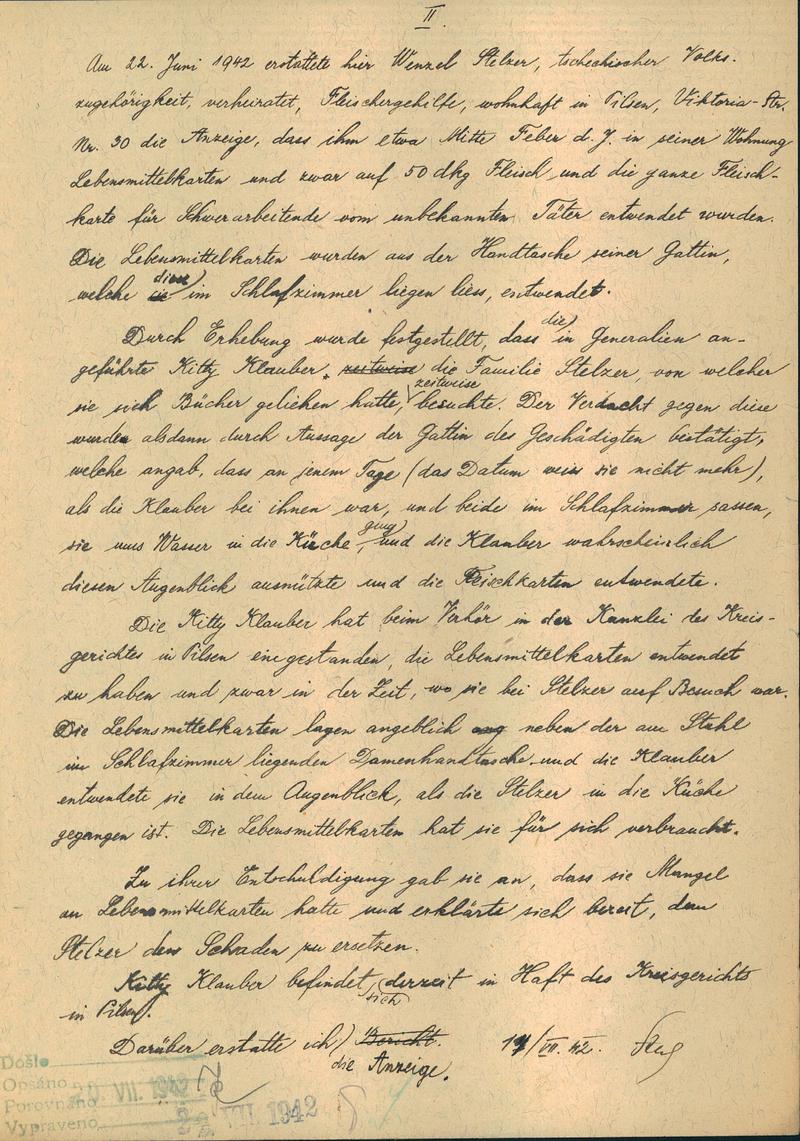 II.
Am 22. Juni 1942 erstattete hier Wenzel Stelzer, tschechischer Volks-
zugehörigkeit, verheiratet, Fleischergehilfe, wohnhaft in Pilsen, Viktoria-Str.
Nr. 30 die Anzeige, dass ihm etwa Mitte Feber d. J. in seiner Wohnung
Lebensmittelkarten und zwar auf 50 dkg Fleisch und die ganze Fleisch-
karte für Schwerarbeitende vom unbekannten Täter entwendet wurden.
Die Lebensmittelkarten wurden aus der Handtasche seiner Gattin,
welche diese im Schlafzimmer liegen liess, entwendet.
Durch Erhebung wurde festgestellt, dass die in Generalien an-
geführte Kitty Klauber, zeitweise die Familie Stelzer, von welcher
sie sich Bücher geliehen hatte, zeitweise besuchte. Der Verdacht gegen diese
wurde alsdann durch Aussage der Gattin des Geschädigten bestätigt,
welche angab, dass an jenem Tage (das Datum weiss sie nicht mehr),
als die Klauber bei ihnen war, und beide im Schlafzimmer sassen,
sie ums Wasser in die Küche ging, und die Klauber wahrscheinlich
diesen Augenblick ausnützte und die Fleischkarten entwendete.
Die Kitty Klauber hat beim Verhör in der Kanzlei des Kreis-
gerichtes in Pilsen eingestanden, die Lebensmittelkarten entwendet
zu haben und zwar in der Zeit, wo sie bei Stelzer auf Besuch war.
Die Lebensmittelkarten lagen angeblich neben der am Stuhl
im Schlafzimmer liegenden Damenhandtasche und die Klauber
entwendete sie in dem Augenblick, als die Stelzer in die Küche
gegangen ist. Die Lebensmittelkarten hat sie für sich verbraucht.
Zu ihrer Entschuldigung gab sie an, dass sie Mangel
an Lebensmittelkarten hatte und erklärte sich bereit, dem
Stelzer den Schaden zu ersetzen.
Kitty Klauber befindet sich derzeit in Haft des Kreisgerichts
in Pilsen.
Darüber erstatte ich Bericht. 17/VII. 42.
die Anzeige.
Došlo
Opsáno VII. 1942
Porovnáno
Vypraveno VII 1942